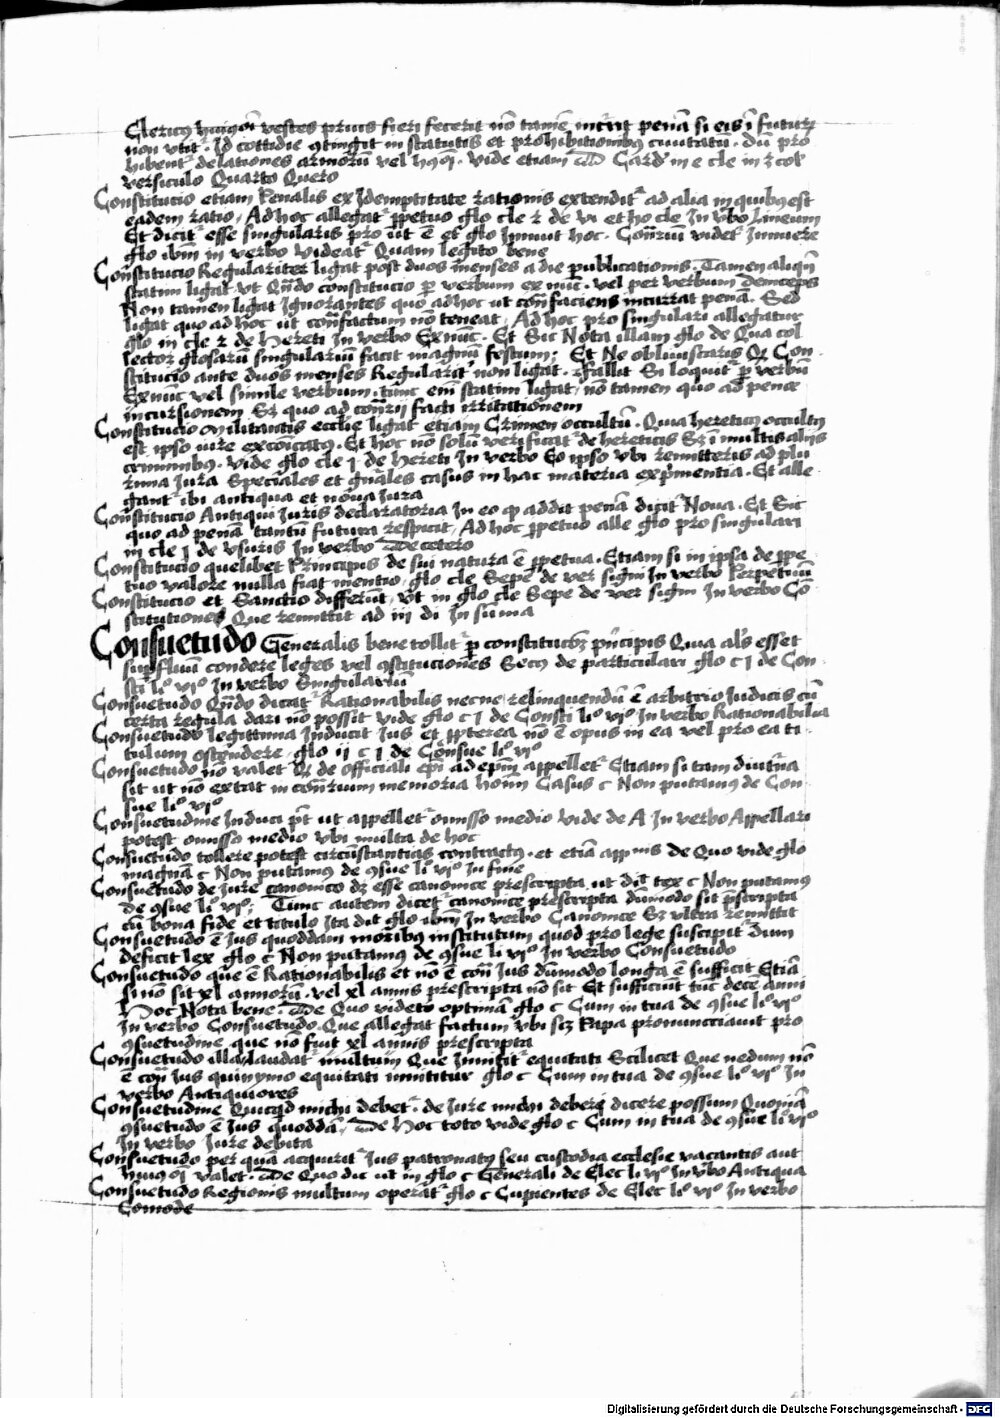 Clericus huiusmōi vestes prius fieri fecerit nō tamē incurrit penā si eis ī futurū
non utitᷣ. Id cottidie ꝯtingit in statutis et prohibitionibus ciuitatū. Dū pro
hibentᷣ delationes armorū vel hmōi. Vide etiam Card in e cle in
versiculo Quarto Quero
Constitucio etiam Penalis ex Idemptitate rationis extenditᷣ ad alia in quibus est
eadem ratio, Ad hoc allegatᷣ ꝑpetuo glo cle 2 de vi et ho cle In vbo Lineum
Et dicitᷣ esse singularis pro ut ē et glo Innuit hoc. Contrariū videtᷣ Innuere
glo ibm in verbo Videatᷣ Quam legito bene
Constitucio Regulariter ligat post duos menses a die publicationis. Tamen aliqn̄
statim ligat ut Qn̄do constitucio ꝑ verbum ex nūc. vel per verbum deinceps
Non tamen ligat Ignorantes quo ad hoc ut contrafaciens incurrat penā. Sed
ligat quo ad hoc ut contrafactum nō teneat, Ad hoc pro singulari allegatur
glo in cle 2 de Hereti In verbo Ex nūc. Et Sic Nota illam glo de Qua col
lector glosarū singulariū facit magnū festum; Et Ne obliuiscaris Qꝫ Con
stitucio ante duos menses Regularitᷣ non ligat. fallit Si loquitᷣ ꝑ verbū
Ex nūc vel simile verbum. tunc enī statim ligat, nō tamen quo ad pene
incursionem Sꝫ quo ad contrarij facti irritationem
Constitucio Militantis ecclīe ligat etiam Crimen occultū. Quia hereticus occultus
est ipso iure excōicatus. Et hoc nō solū verificatᷣ de hereticis Sꝫ ī multis alijs
criminibus. vide glo cle j de Hereti In verbo Eo ipso ubi remitteris ad plu
rima Jura Speciales et gn̄ales casus in hac materia exprimentia. Et alle
gantᷣ ibi antiqua et nōua Jura
Constitucio Antiqui Juris declaratoria In eo qꝫ addit penā dicitᷣ Noua. Et Sic
quo ad penā tantū futura respicit, Ad hoc ꝑpetuo alle glo pro singulari
in cle j de Vsuris In verbo De cetero
Constitucio quelibet Principis de sui natura ē ꝑpetua. Etiam si in ipsa de ꝑpe
tuo valore nulla fiat mentio, glo cle Sepe de ver signi In verbo Perpetuū
Constitucio et Sanctio differūt, Vt in glo cle Sepe de ver signi In verbo Cō
stitutiones Que remittit ad iij di In sūma
Consuetudo Generalis bene tollitᷣ ꝑ constitucōꝫ principis Quia als̄ esset
suꝑfluū condere leges vel ꝯstituciones Secus de particulari glo c j de Con
sti li° vi° In verbo Singulariū
Consuetudo Qn̄do dicatᷣ Rationabilis necne, relinquendū ē arbitrio Judicis cū
certa regula dari nō possit vide glo c j de Consti li° vi° In verbo Rationabilia
Consuetudo legittima Inducit Jus et ꝓpterea nō ē opus in ea vel pro ea ti
tulum ostendere, glo ij c j de Cōnsue li° vi°
Consuetudo nō valet Qꝫ de officiali epī ad epm̄ appelletᷣ Etiam si tam diuturna
sit ut nō extat in contrarium memoria homī Casus c Non putamus de Con
sue li° vi°
Consuetudine Induci pōt ut appelletᷣ omisso medio vide de A In verbo Appellari
potest omisso medio ubi multa de hoc
Consuetudo tollere potest circūstantias contractus. et etiā de Quo vide glo
magnā c Non putamus de ꝯsue li° vi° In fine
Consuetudo de Jure canonico dꝫ esse canonice prescripta ut dic̄ tex c Non putamus
de ꝯsue li° vi°; Tunc autem dicetᷣ canonice prescripta dumodo sit p̄scripta
cū bona fide et titulo Ita dicit glo ibm̄ In verbo Canonice Sꝫ vltra remittit
Consuetudo ē Jus quoddam moribus institutum quod pro lege suscipitᷣ Dum
deficit lex glo c Non putamus de ꝯsue li° vi° In verbo Consuetudo
Consuetudo que ē Rationabilis et nō ē contra Jus dūmodo longa ē sufficit Etiā
si nō sit xl annorū. vel xl annis prescripta nō sit Et sufficiunt tūc decē anni
Hoc Nota bene. De Quo videto optimā glo c Cum in tua de ꝯsue li° vi°
In verbo Consuetudo. Que allegat factum ubi scꝫ Papa pronuncciauit pro
ꝯsuetudine que nō fuit xl annis prescripta
Consuetudo illa laudatᷣ multum Que Innititᷣ equitati Scilicet Que nedum nō
ē contra Jus quinymo equitati innititur glo c Cum in tua de ꝯsue li° vi° In
verbo Antiquiores
Consuetudine Quicqd michi debetᷣ. de Jure michi deberi dicere possum Quoniā
ꝯsuetudo ē Jus quoddā, De Hoc toto vide glo c Cum in tua de ꝯsue li° vi°
In verbo Jure debita
Consuetudo per quā acquiritᷣ Jus patronatus seu custodia ecclesie vacantis aut
huiusmōi valet. De Quo dic ut in glo c Generali de Elec li vi° In vbo Antiqua
Consuetudo Regionis multum operatᷣ glo c Cupientes de Elec li° vi° In verbo
Comode
Digitalisierung gefördert durch die Deutsche Forschungsgemeinschaft - DFG